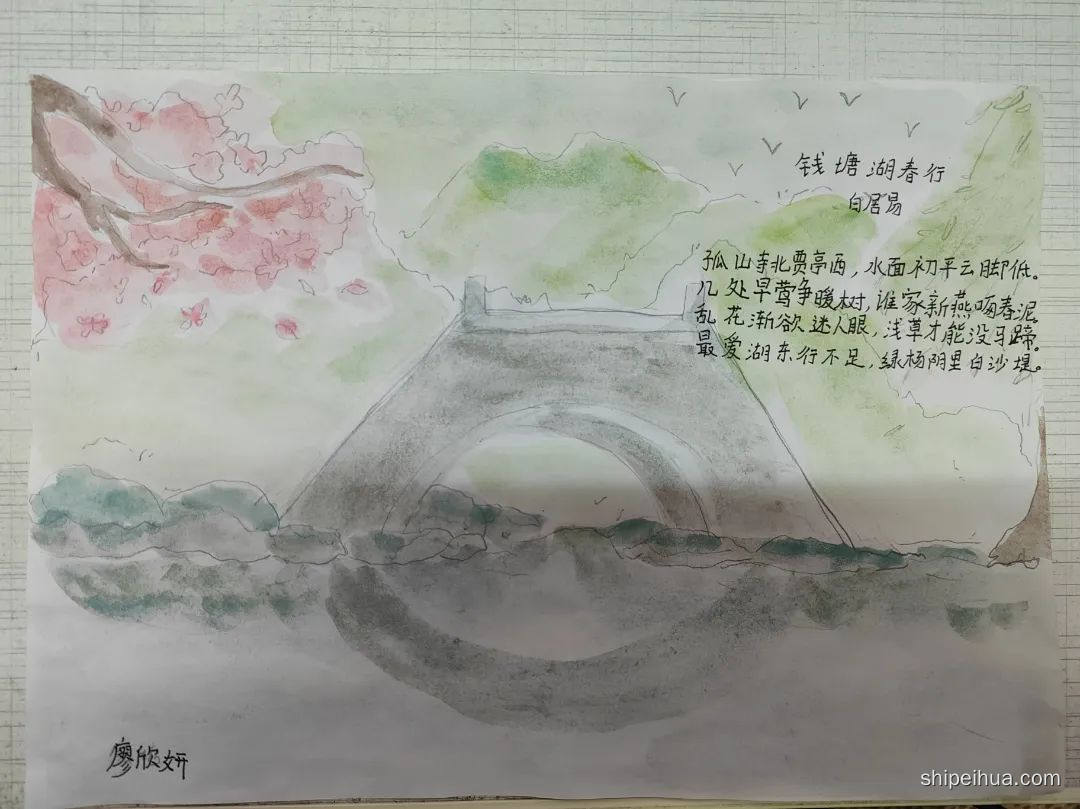 钱塘湖春行
白居易
孤山寺北贾亭西,水面初平云脚低。
几处早莺争暖树,谁家新燕啄春泥。
乱花渐欲迷人眼,浅草才能没马蹄。
最爱湖东行不足,绿杨阴里白沙堤。
廖欣妍
shipeihua.com